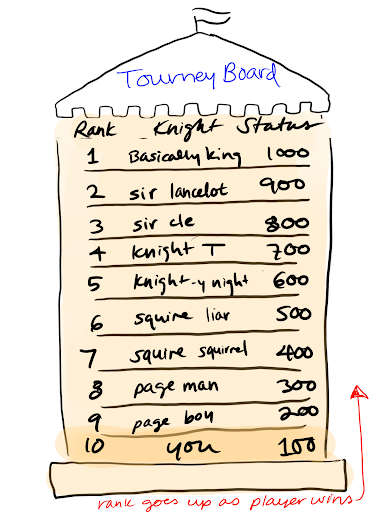 Tourney Board
Rank Knight Status
1 Basically King 1000
2 sir lancelot 900
3 sir cle 800
4 knight T 700
5 knight-y night 600
6 squire liar 500
7 squire squirrel 400
8 page man 300
9 page boy 200
10 you 100
rank goes up as player wins